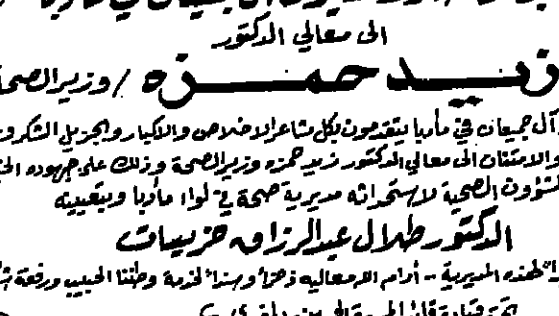 الى معالي الدكتور
زيد حمزه / وزير الصحة
آل جميعان في مأدبا يتقدمون بكل مشاعر الاخلاص والاكبار والجزيل الشكر و
والامتنان الى معالي الدكتور زيد حمزه وزير الصحة وذلك على جهوده
لشؤون الصحية لاستحداثه مديرية صحة في لواء مأدبا وبتعيينه
الدكتور طلال عبدالرزاق خريسات
لهذه المديرية - أدام الله معاليه ذخرا وسندا لخدمة وطننا الحبيب ورفعة
تحت قيادة قائد المسيرة